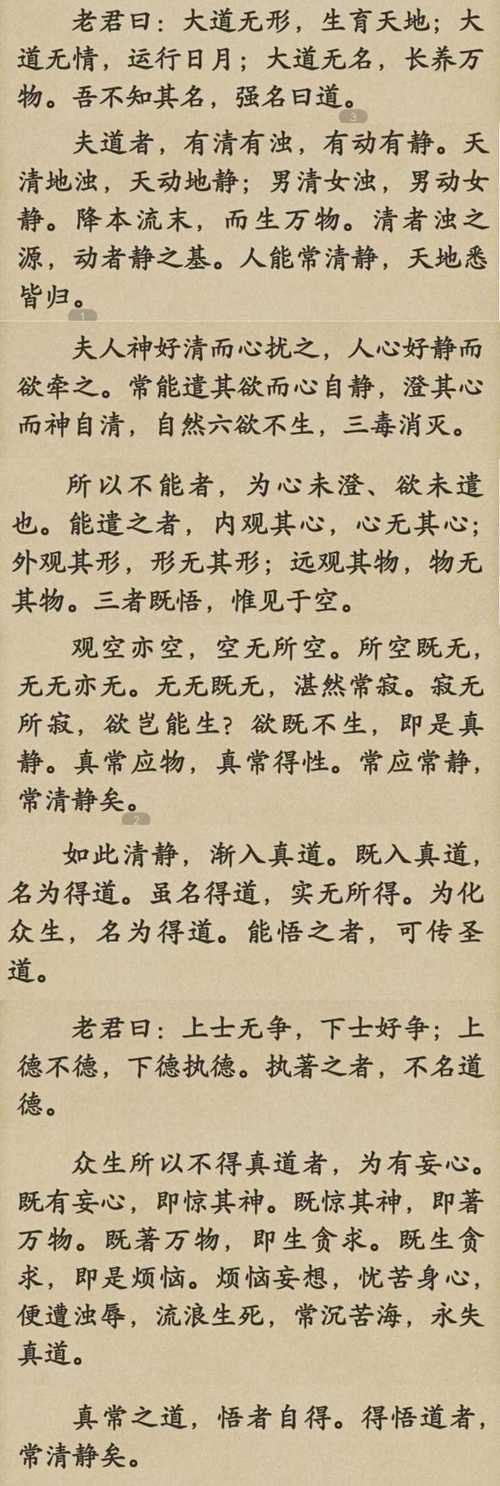 老君曰：大道无形，生育天地；大
道无情，运行日月；大道无名，长养万
物。吾不知其名，强名曰道。
3
夫道者，有清有浊，有动有静。天
清地浊，天动地静；男清女浊，男动女
静。降本流末，而生万物。清者浊之
源，动者静之基。人能常清静，天地悉
皆归。
1
夫人神好清而心扰之，人心好静而
欲牵之。常能遣其欲而心自静，澄其心
而神自清，自然六欲不生，三毒消灭。
所以不能者，为心未澄、欲未遣
也。能遣之者，内观其心，心无其心；
外观其形，形无其形；远观其物，物无
其物。三者既悟，惟见于空。
观空亦空，空无所空。所空既无，
无无亦无。无无既无，湛然常寂。寂无
所寂，欲岂能生？欲既不生，即是真
静。真常应物，真常得性。常应常静，
常清静矣。
2
如此清静，渐入真道。既入真道，
名为得道。虽名得道，实无所得。为化
众生，名为得道。能悟之者，可传圣
道。
老君曰：上士无争，下士好争；上
德不德，下德执德。执著之者，不名道
德。
众生所以不得真道者，为有妄心。
既有妄心，即惊其神。既惊其神，即著
万物。既著万物，即生贪求。既生贪
求，即是烦恼。烦恼妄想，忧苦身心，
便遭浊辱，流浪生死，常沉苦海，永失
真道。
真常之道，悟者自得。得悟道者，
常清静矣。